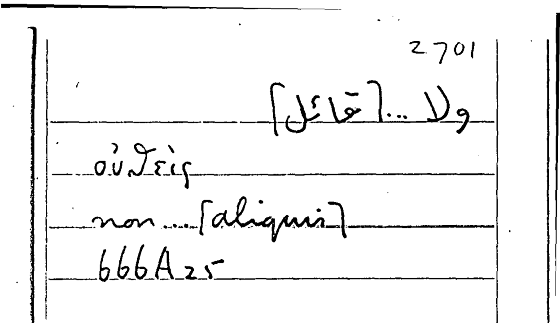 2701
ولا ... [قائل]
οὐθείς
non ... [aliquis]
666A25